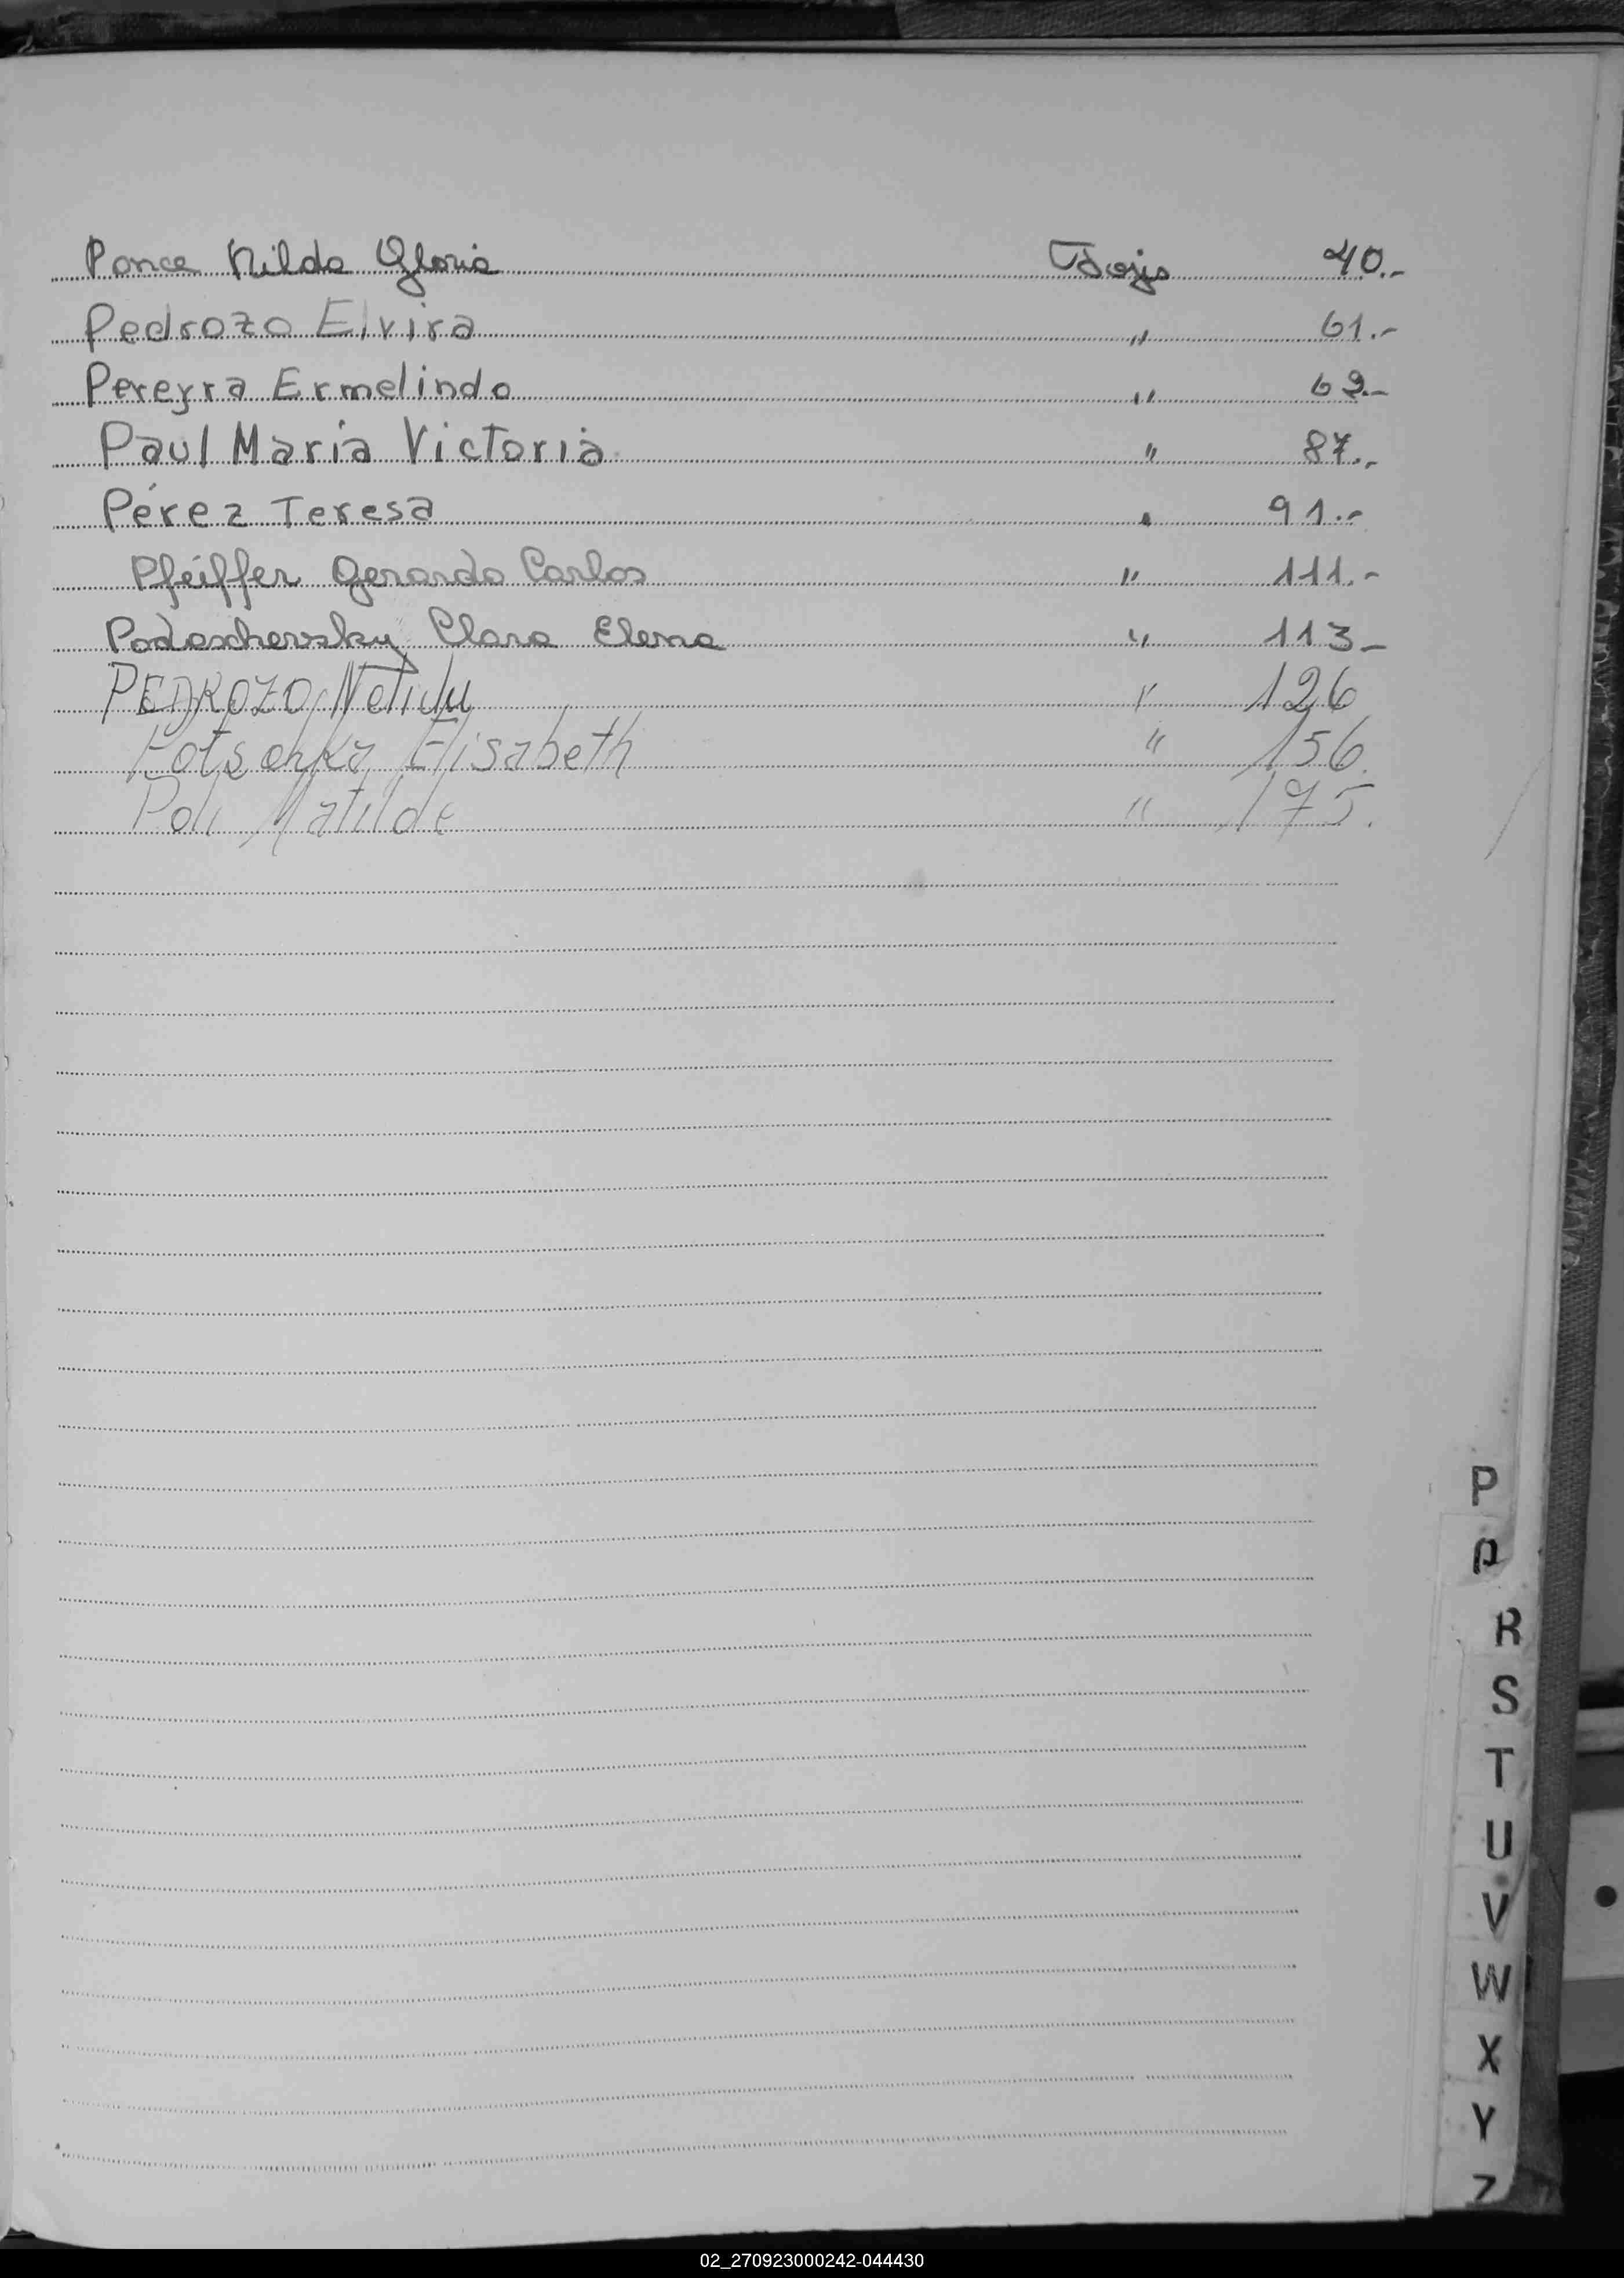 Ponce Nilda Gloria Foja 40.-
Pedrozo Elvira " 61.-
Pereyra Ermelindo " 69.-
Paul Maria Victoria " 87.-
Pérez Teresa " 91.-
Pfeiffer Gerardo Carlos " 111.-
Podoschersky Clara Elena " 113-
PEDROZO Nelida " 126
Potschka Elisabeth " 156.
Poli Matilde " 175.
P
Q
R
S
T
U
V
W
X
Y
Z
02_270923000242-044430